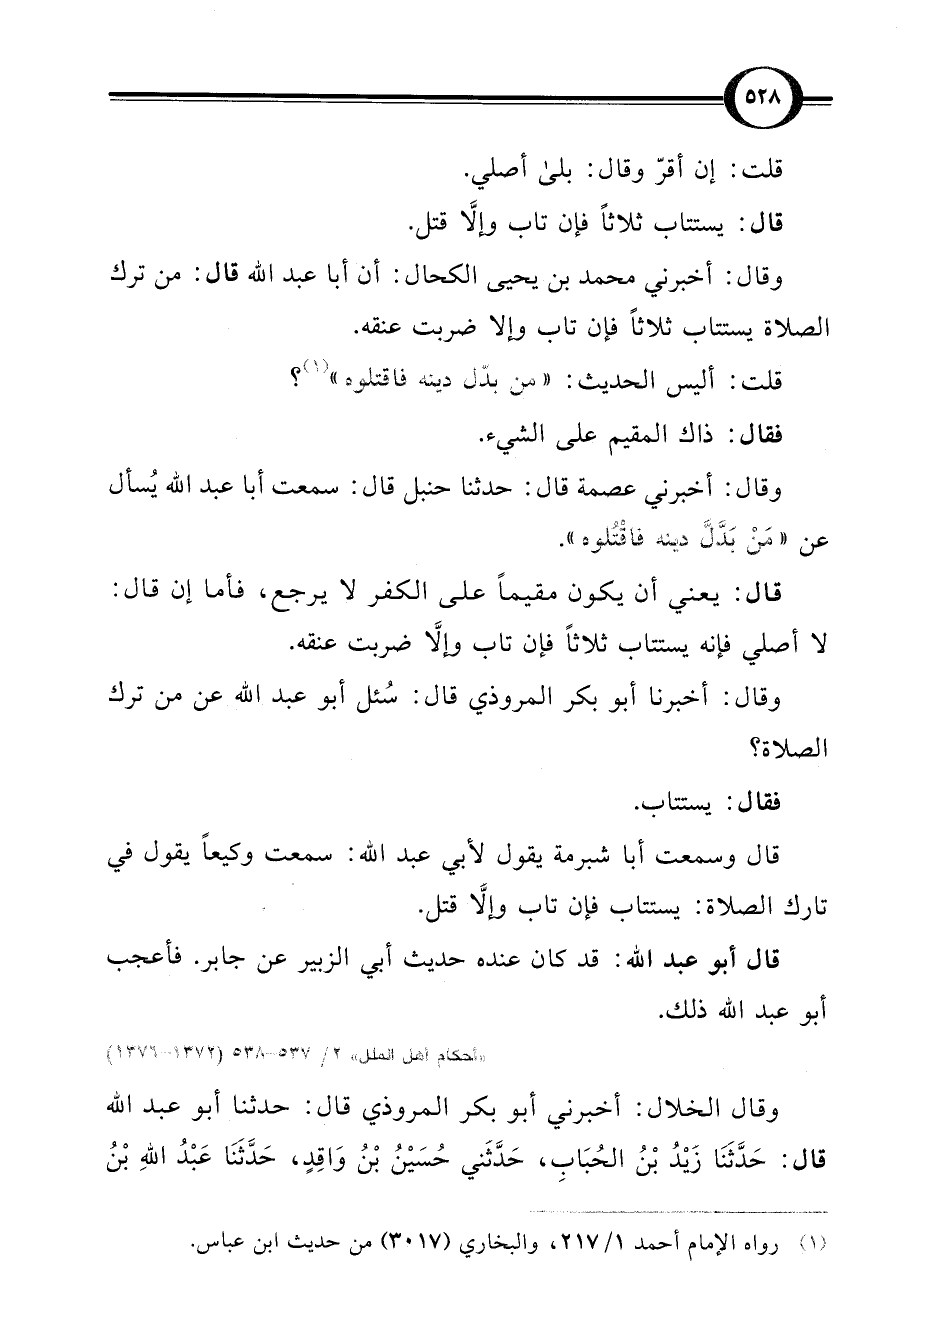 ٥٢٨
قلت: إن أقرّ وقال: بلىٰ أصلي.
قال: يستتاب ثلاثاً فإن تاب وإلَّا قتل.
وقال: أخبرني محمد بن يحيى الكحال: أن أبا عبد الله قال: من ترك
الصلاة يستتاب ثلاثاً فإن تاب وإلا ضربت عنقه.
قلت: أليس الحديث: «من بدّل دينه فاقتلوه»(١)؟
فقال: ذاك المقيم على الشيء.
وقال: أخبرني عصمة قال: حدثنا حنبل قال: سمعت أبا عبد الله يُسأل
عن «مَنْ بَدَّلَّ دينه فاقْتُلوه».
قال: يعني أن يكون مقيماً على الكفر لا يرجع، فأما إن قال:
لا أصلي فإنه يستتاب ثلاثاً فإن تاب وإلَّا ضربت عنقه.
وقال: أخبرنا أبو بكر المروذي قال: سُئل أبو عبد الله عن من ترك
الصلاة؟
فقال: يستتاب.
قال وسمعت أبا شبرمة يقول لأبي عبد الله: سمعت وكيعاً يقول في
تارك الصلاة: يستتاب فإن تاب وإلَّا قتل.
قال أبو عبد الله: قد كان عنده حديث أبي الزبير عن جابر. فأعجب
أبو عبد الله ذلك.
«أحكام أهل الملل» ٢/ ٥٣٧-٥٣٨ (١٣٧٢-١٣٧٦)
وقال الخلال: أخبرني أبو بكر المروذي قال: حدثنا أبو عبد الله
قال: حَدَّثَنَا زَيْدُ بْنُ الحُبَابِ، حَدَّثَني حُسَيْنُ بْنُ وَاقِدٍ، حَدَّثَنَا عَبْدُ اللهِ بْنُ
(١) رواه الإمام أحمد ١/ ٢١٧، والبخاري (٣٠١٧) من حديث ابن عباس.